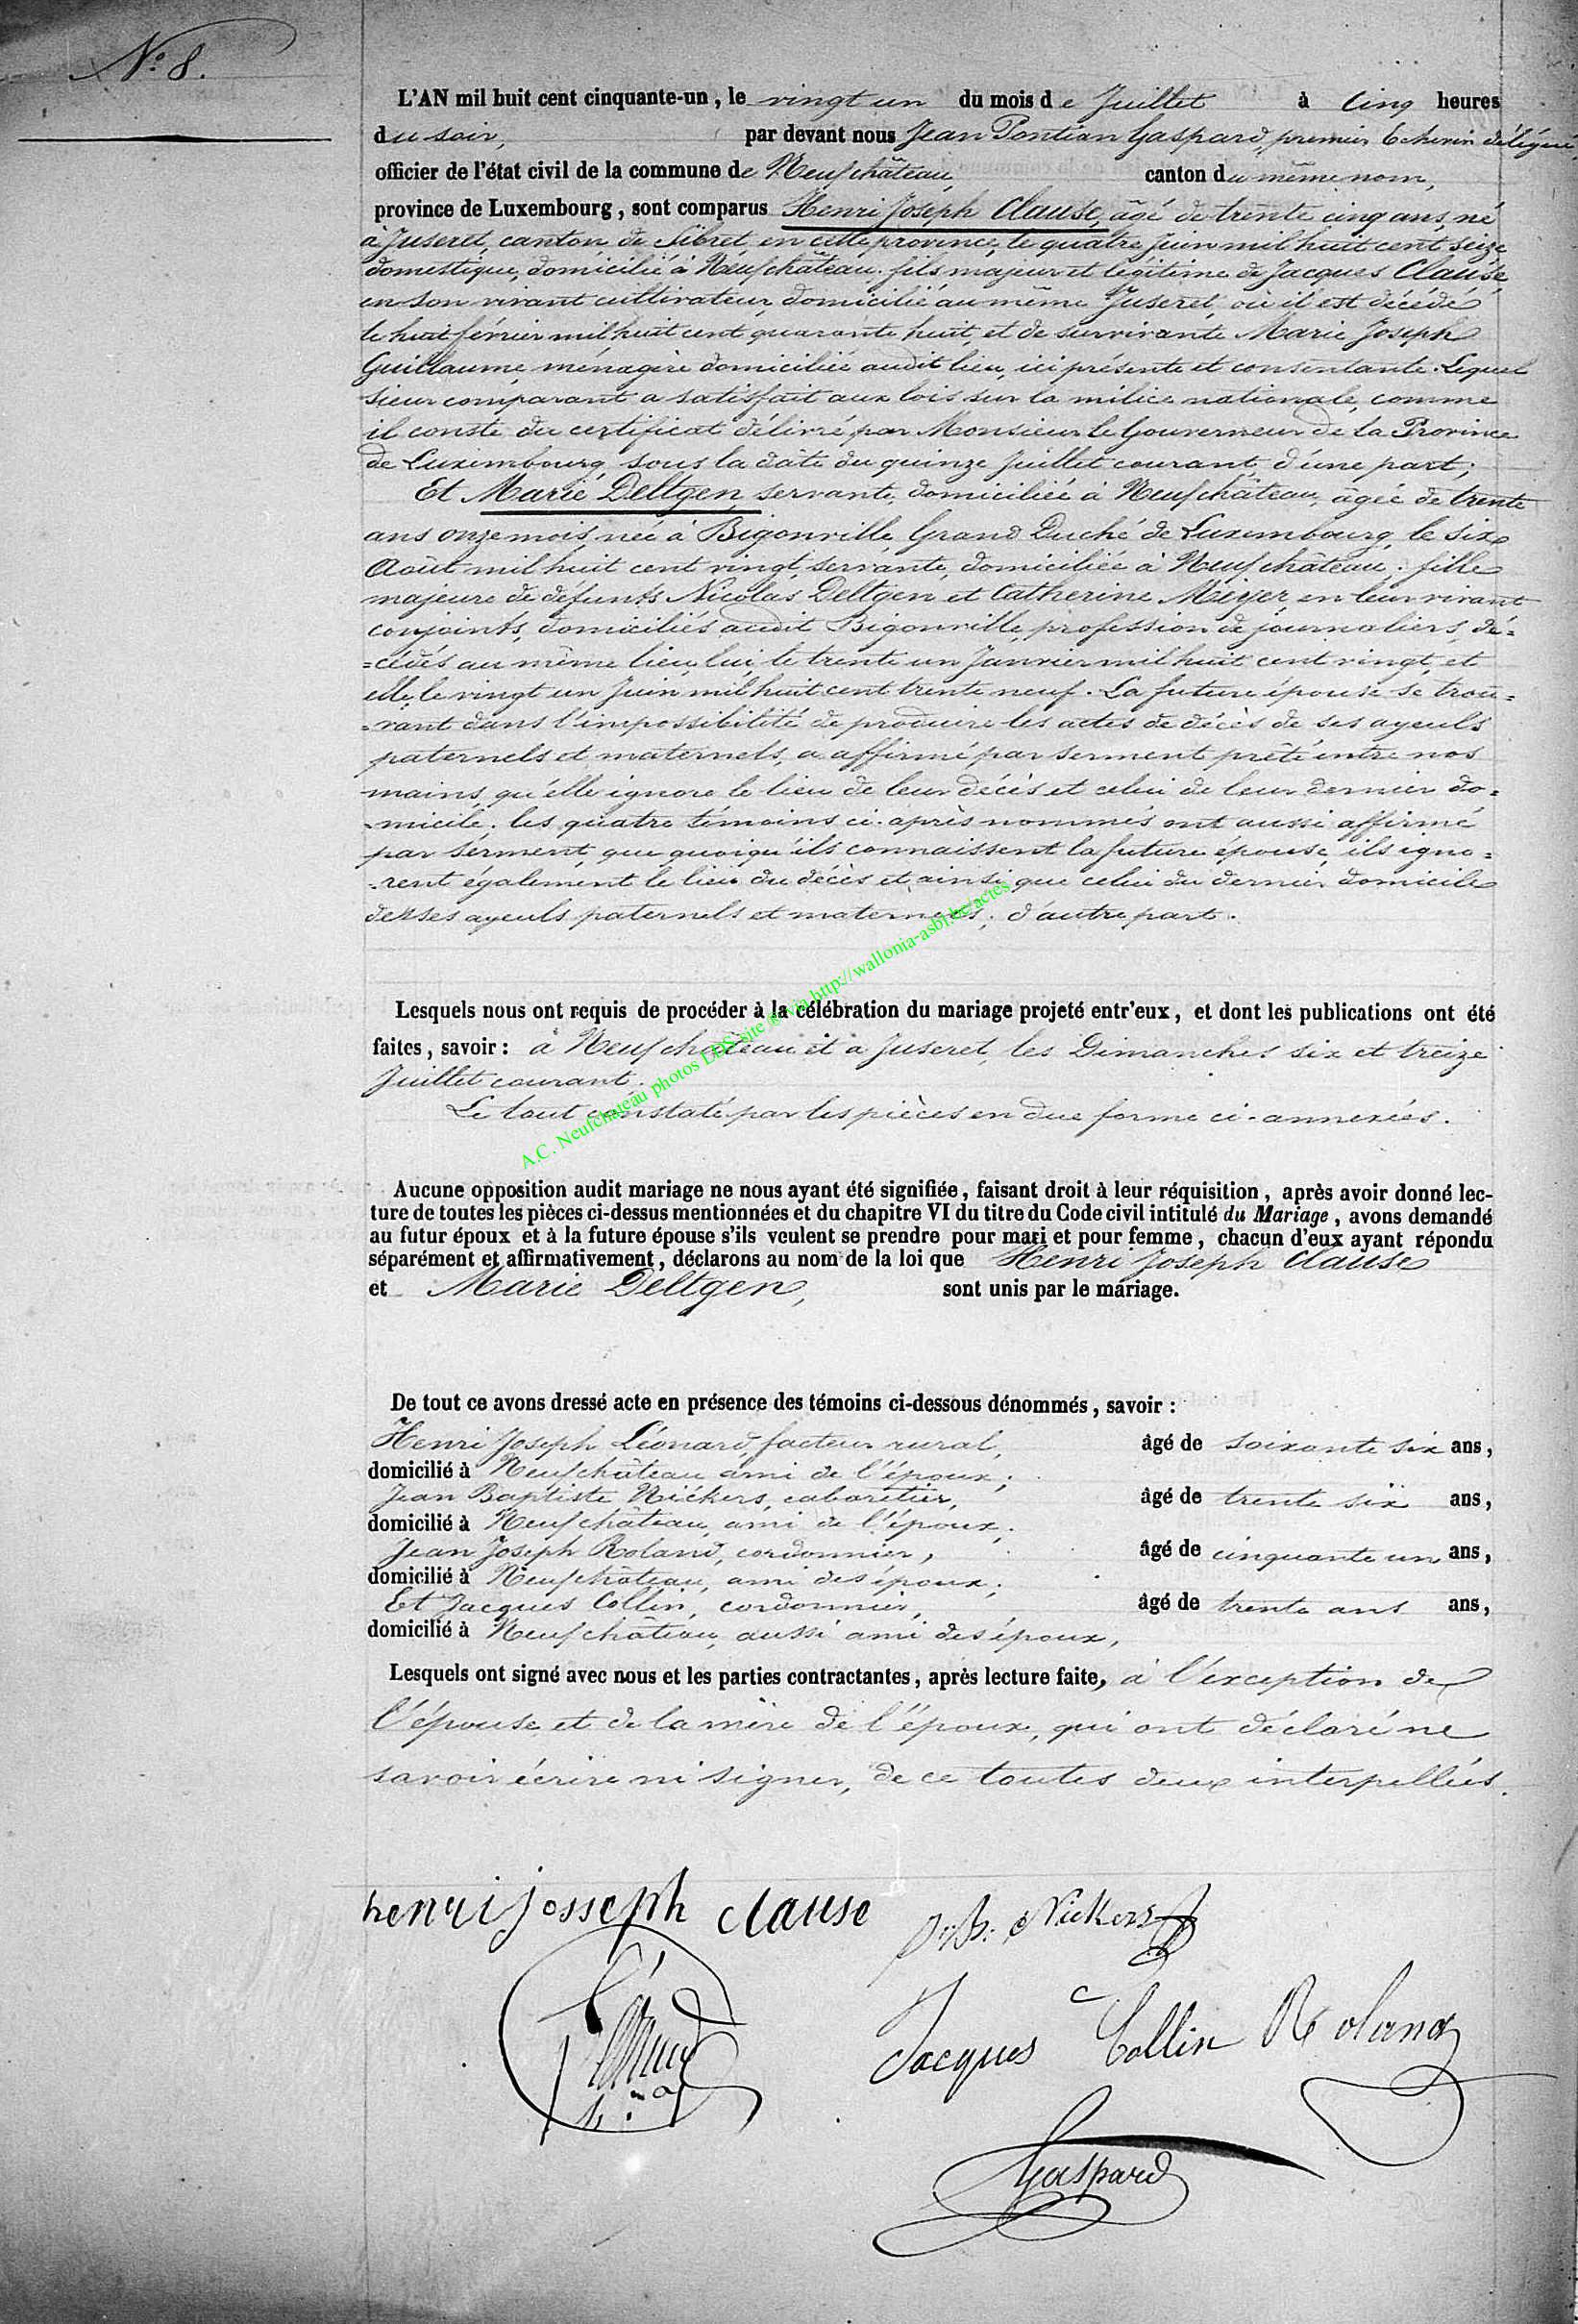 N° 8.
L'AN mil huit cent cinquante-un, le vingt un du mois de Juillet à Cinq heures
du soir, par devant nous Jean Pontian Gaspard, premier Echevin délégué,
officier de l'état civil de la commune de Neufchâteau, canton du même nom,
province de Luxembourg, sont comparus Henri Joseph Clause, âgé de trente cinq ans, né
à Juseret, canton de Sibret, en cette province, le quatre Juin mil huit cent seize
domestique, domicilié à Neufchâteau. fils majeur et légitime de Jacques Clause,
en son vivant cultivateur, domicilié au même Juseret, où il est décédé
le huit février mil huit cent quarante huit, et de survivante Marie Joseph
Guillaume, ménagère domiciliée audit lieu, ici présente et consentante. Lequel
sieur comparant a satisfait aux lois sur la milice nationale, comme
il conste du certificat délivré par Monsieur le Gouverneur de la Province
de Luxembourg, sous la date du quinze Juillet courant, d'une part;
Et Marie Deltgen, servante, domiciliée à Neufchâteau, âgée de trente
ans onze mois, née à Bigonville, Grand Duché de Luxembourg, le six
Août mil huit cent vingt, servante, domiciliée à Neufchâteau. fille
majeure de défunts Nicolas Deltgen et Catherine Meijer, en leur vivant
conjoints, domiciliés audit Bigonville, profession de journaliers, dé=
=cédés au même lieu, lui, le trente un Janvier mil huit cent vingt, et
elle, le vingt un Juin mil huit cent trente neuf. La future épouse se trou=
=vant dans l'impossibilité de produire les actes de décès de ses ayeuls
paternels et maternels, a affirmé par serment prêté entre nos
mains, qu'elle ignore le lieu de leur décès et celui de leur dernier do=
=micile. les quatre témoins ci-après nommés ont aussi affirmé
par serment, que quoiqu'ils connaissent la future épouse, ils igno=
=rent également le lieu du décès et ainsi que celui du dernier domicile
de ses ayeuls paternels et maternels; d'autre part.
Lesquels nous ont requis de procéder à la célébration du mariage projeté entr'eux, et dont les publications ont été
faites, savoir: à Neufchâteau et à Juseret, les Dimanches six et treize
Juillet courant.
Le tout constaté par les pièces en due forme ci-annexées.
A.C. Neufchateau photos LDS site @ via http://wallonia-asbl.be/actes
Aucune opposition audit mariage ne nous ayant été signifiée, faisant droit à leur réquisition, après avoir donné lec-
ture de toutes les pièces ci-dessus mentionnées et du chapitre VI du titre du Code civil intitulé du Mariage, avons demandé
au futur époux et à la future épouse s'ils veulent se prendre pour mari et pour femme, chacun d'eux ayant répondu
séparément et affirmativement, déclarons au nom de la loi que Henri Joseph Clause
et Marie Deltgen, sont unis par le mariage.
De tout ce avons dressé acte en présence des témoins ci-dessous dénommés, savoir:
Henri Joseph Léonard, facteur rural, âgé de soixante six ans,
domicilié à Neufchâteau ami de l'époux;
Jean Baptiste Nickers, cabaretier, âgé de trente six ans,
domicilié à Neufchâteau, ami de l'époux.
Jean Joseph Roland, cordonnier, âgé de cinquante un ans,
domicilié à Neufchâteau, ami des époux;
Et Jacques Collin, cordonnier, âgé de trente ans ans,
domicilié à Neufchâteau, aussi ami des époux,
Lesquels ont signé avec nous et les parties contractantes, après lecture faite, à l'exception de
l'épouse et de la mère de l'époux, qui ont déclaré ne
savoir écrire ni signer, de ce toutes deux interpellées.
henri josseph clause
J:B: Nickers
Jacques Collin Roland
Gaspard